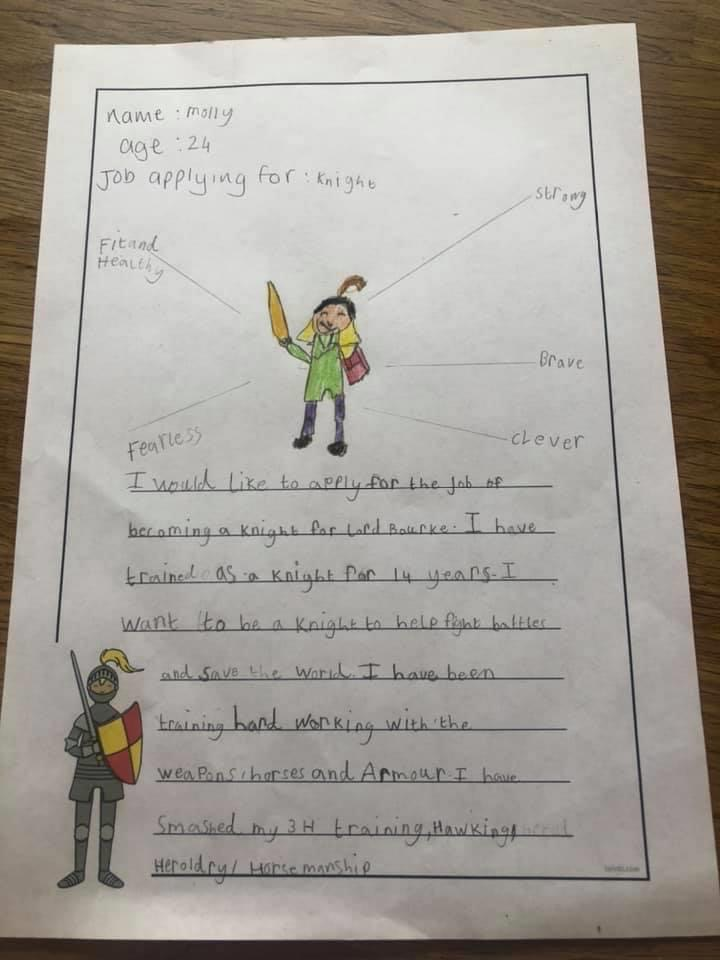 name : molly
age : 24
Job applying for : Knight
Strong
Fit and
Healthy
Brave
Fearless
clever
I would like to apply for the Job of
becoming a Knight for Lord Bourke. I have
trained as a Knight for 14 years. I
want to be a Knight to help fight battles
and save the World. I have been
training hard working with the
weapons, horses and Armour. I have
Smashed my 3H training, Hawking,
Heroldry, Horsemanship